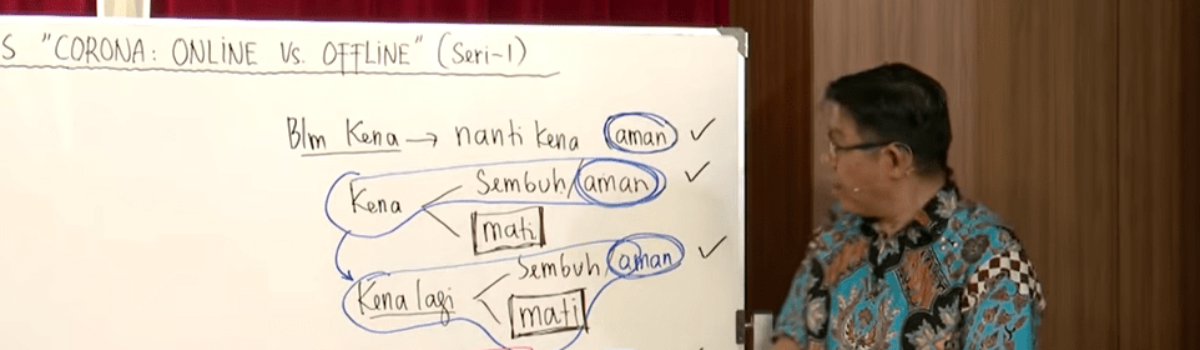 S "CORONA: ONLINE Vs. OFFLINE" (Seri-1)
Blm Kena → nanti kena aman ✓
Sembuh/aman ✓
Kena
mati
Sembuh/aman ✓
Kena lagi
mati